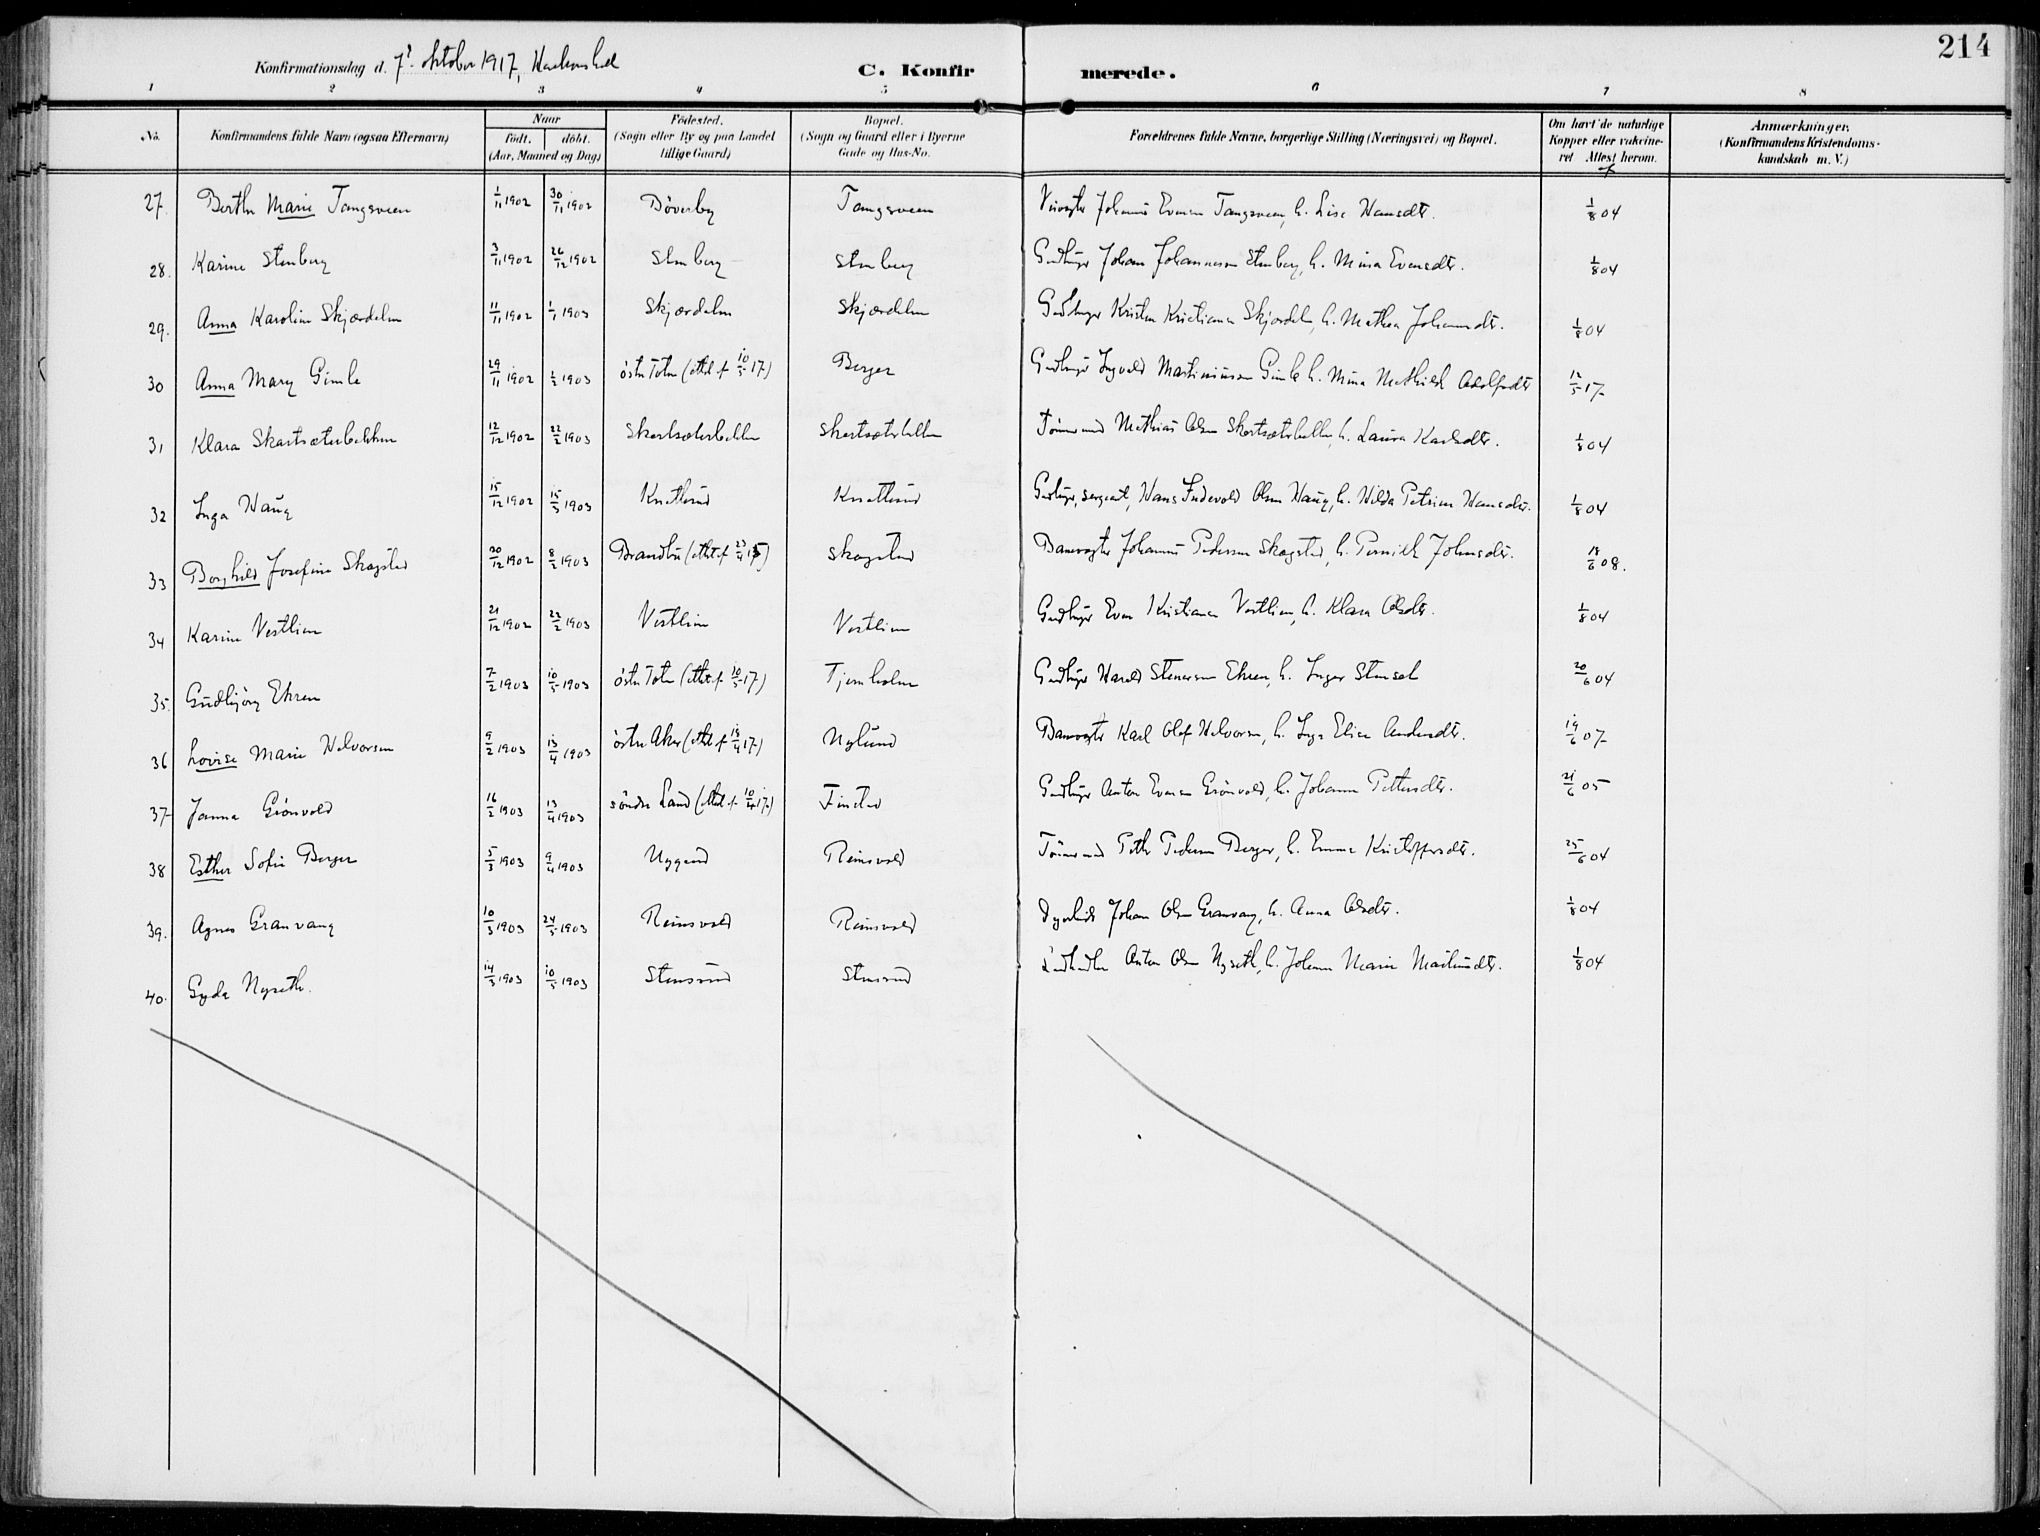 214
Konfirmationsdag d. 7. oktober 1917,
C. Konfirmerede.
1 2 3 4 5 6 7 8
No. Konfirmandens fulde Navn (ogsaa Efternavn) Naar født. døbt. (Aar, Maaned og Dag) Fødested. (Sogn eller By og paa Landet tillige Gaard) Bopæl. (Sogn og Gaard eller i Byerne Gade og Hus-No. Forældrenes fulde Navne, borgerlige Stilling (Næringsvei) og Bopæl. Om havt de naturlige Kopper eller vakcineret Attest herom. Anmærkninger. (Konfirmandens Kristendomskundskab m. V.)
27. Berthe Marie Tangsveen 1/11 1902 30/11 1902 Bøverby Tangsveen Johannes Evensen Tangsveen, h. Lise Hansdtr. 1/8 04
28. Karine Stenberg 3/11 1902 26/12 1902 Stenberg Stenberg Gaardbruger Johan Johannesen Stenberg, h. Mina Evensdtr. 1/8 04
29. Anna Karoline Skjærdalen 11/11 1902 1/1 1903 Skjærdalen Skjærdalen Gaardbruger Kristen Kristiansen Skjærdalen, h. Mathea Johannesdtr. 1/8 04
30 Anna Mary Gimle 29/11 1902 1/2 1903 østre Toten (attest f. 10/5 17) Berger Gaardbruger Ingvald Martiniussen Gimle h. Mina Mathilde Adolfsdtr 12/5 17
31 Klara Skartsæterbakken 12/12 1902 22/2 1903 Skartsæterbakken Skartsæterbakken Tømmermand Mathias Olsen Skartsæterbakken, h. Laura Karlsdtr. 1/8 04
32 Inga Haug 15/12 1902 15/3 1903 Knatterud Knatterud Gaardbruger, sergeant, Hans Indevold Olsen Haug, h. Hilda Petrine Hansdtr. 1/8 04
33 Borghild Josefine Skagstad 20/12 1902 8/2 1903 Brandbu (attest f. 23/4 15) Skagstad Banevogter Johannes Pedersen Skagstad, h. Pernille Johnsdtr. 18/6 08.
34 Karine Vestlien 21/12 1902 22/2 1903 Vestlien Vestlien Gaardbruger Even Kristiansen Vestlien, h. Klara Olsdtr. 1/8 04
35. Gudbjørg Ehren 7/2 1903 10/5 1903 østre Toten (attest f. 10/5 17) Tjernholm Gaardbruger Harald Stenersen Ehren, h. Inger Stensdtr 20/6 04
36 Lovise Marie Halvorsen 9/2 1903 13/4 1903 østre Aker (attest f. 18/4 17) Nylund Banevogter Karl Olof Halvorsen, h. Inga Elise Andersdtr. 19/6 07
37 Janna Grønvold 16/2 1903 13/4 1903 søndre Land (attest f. 10/4 17) Finstad Gaardbruger Anton Evensen Grønvold, h. Johanne Pettersdtr. 21/6 05
38 Esther Sofie Berger 5/3 1903 9/4 1903 Nygaard Reinsvold Tømmermand Petter Pedersen Berger, h. Emma Kristoffersdtr. 25/6 04
39. Agnes Granvang 10/3 1903 24/5 1903 Reinsvold Reinsvold Johan Olsen Granvang, h. Anna Olsdtr. 1/8 04
40. Gyda Nyseth. 14/3 1903 10/5 1903 Stensrud Stensrud Landhandler Anton Olsen Nyseth, h. Johanne Marie Mathiasdtr. 1/8 04